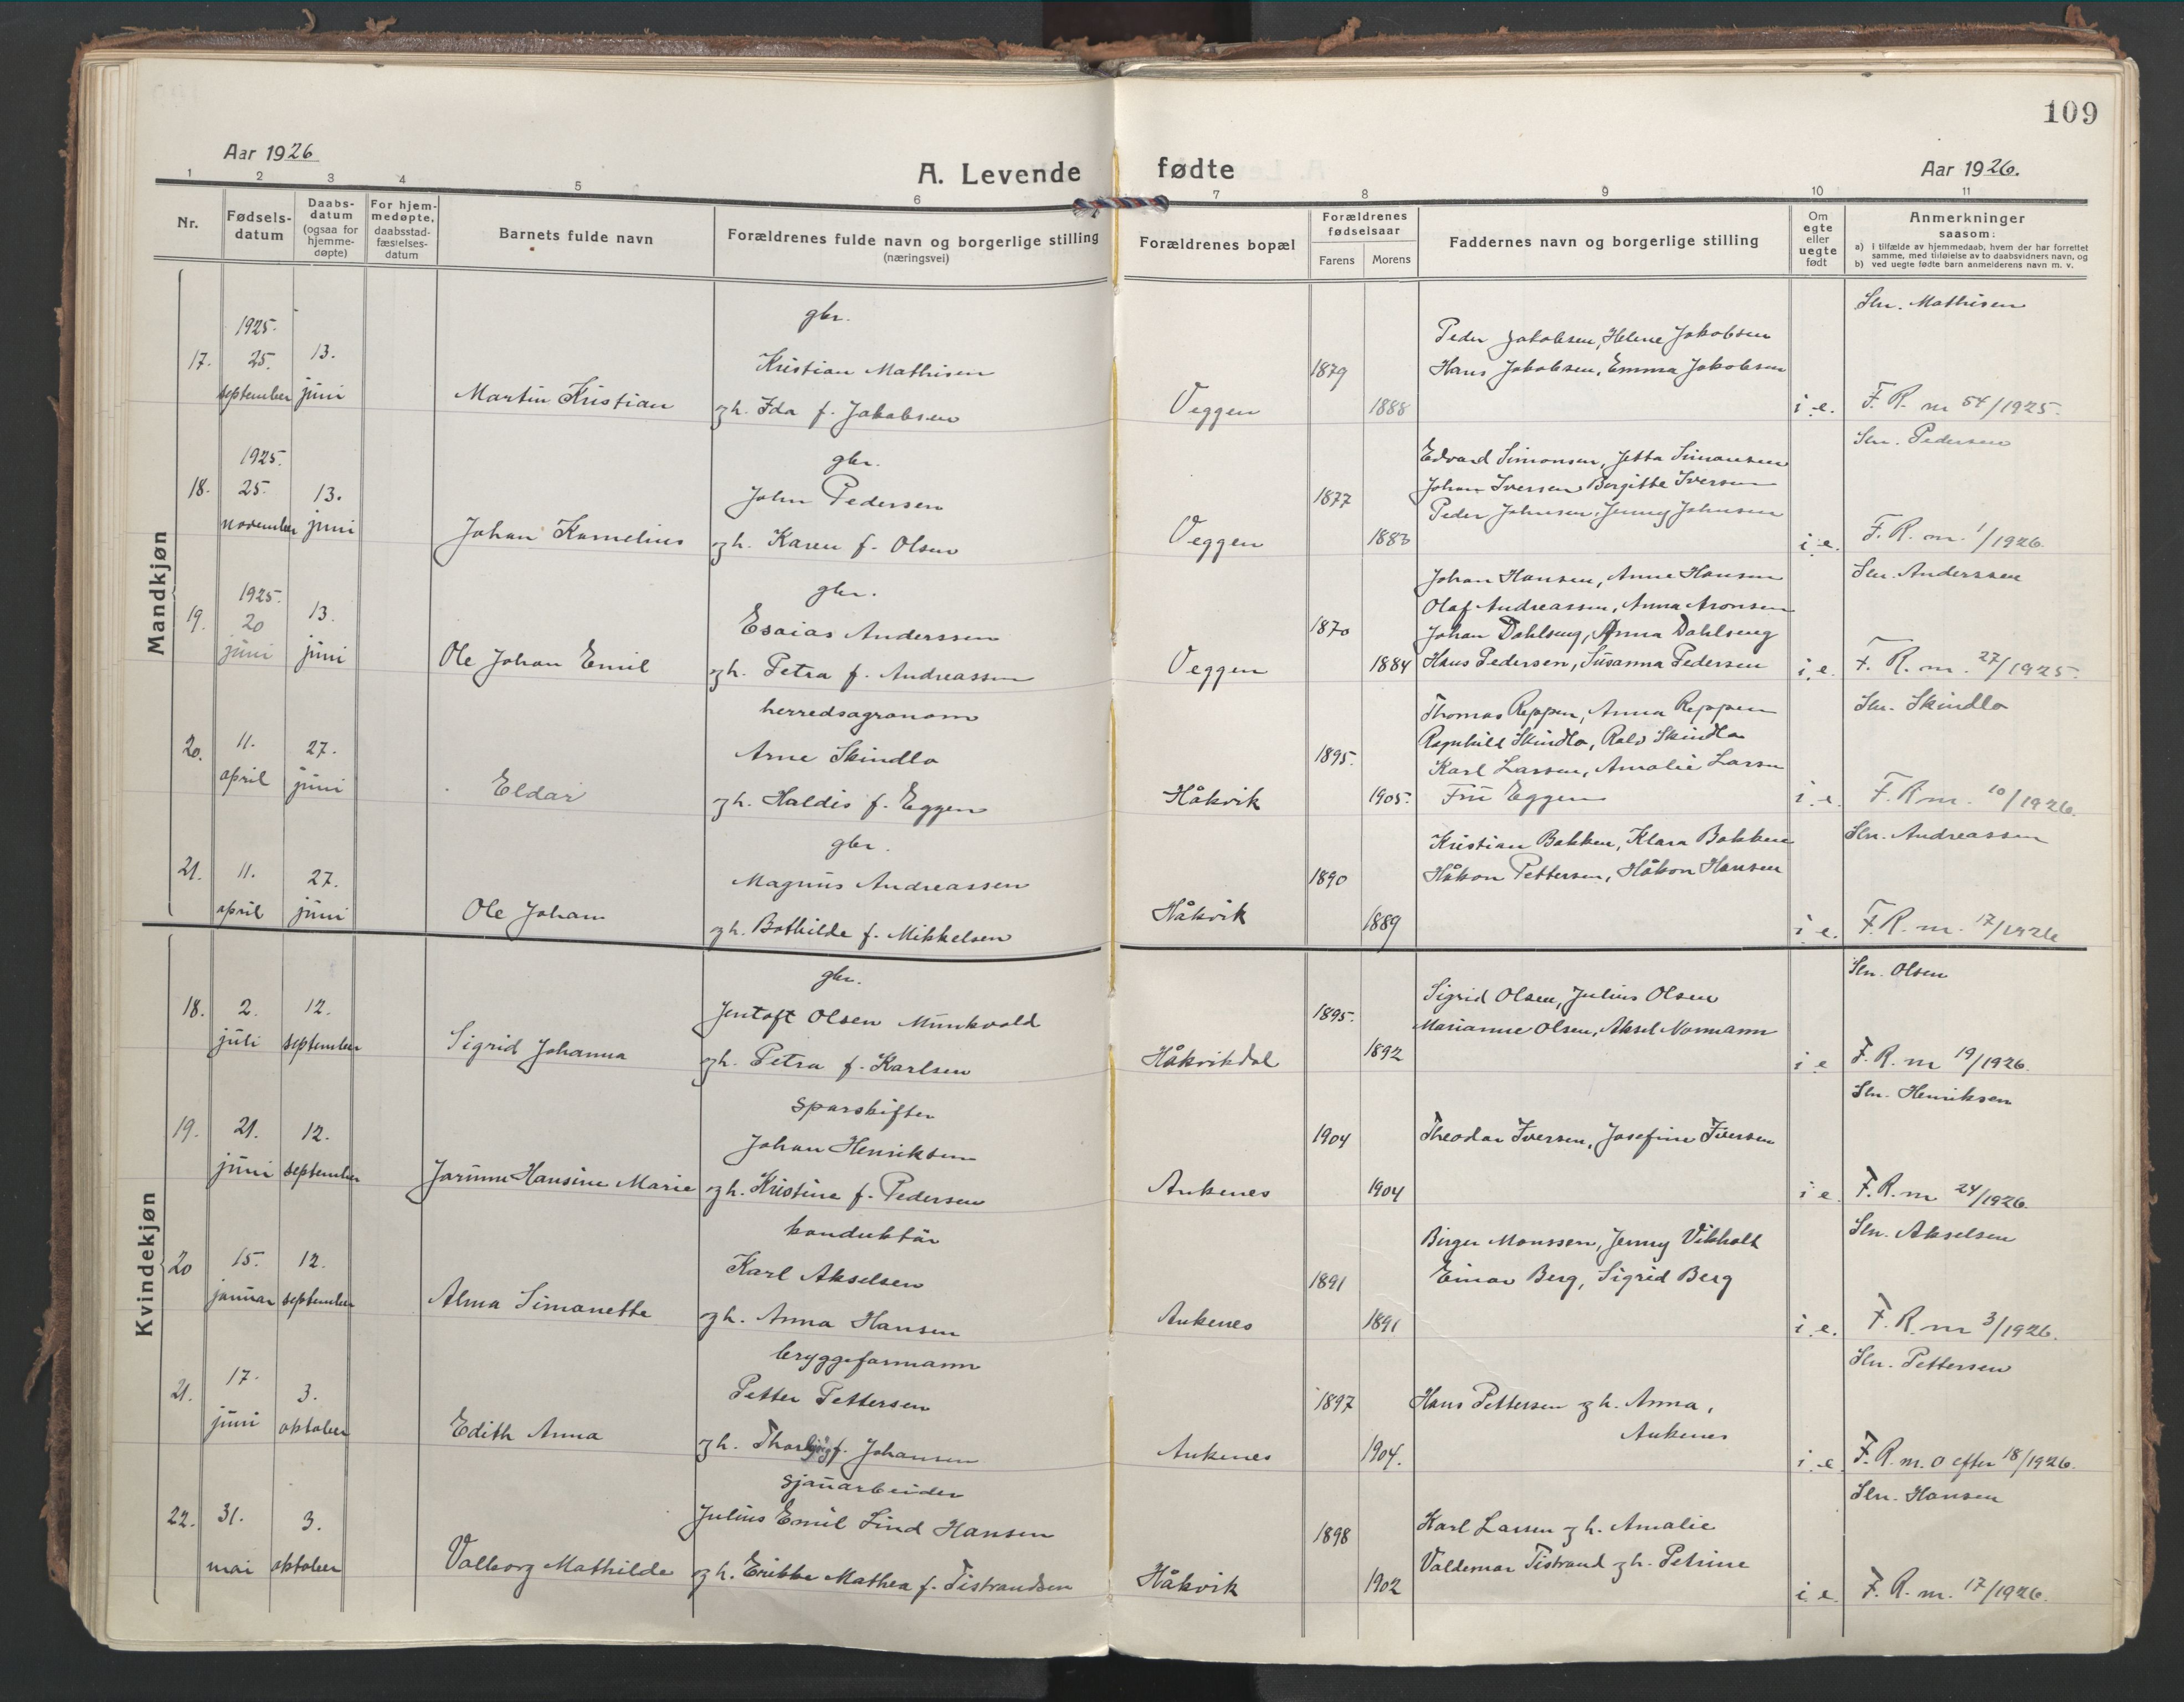 109
Aar 1926
A. Levende fødte
Aar 1926.
1 2 3 4 5 6 7 8 9 10 11
Nr.
Fødsels-
datum
Daabs-
datum
(ogsaa for
hjemme-
døpte)
For hjem-
medøpte,
daabsstad-
fæstelses-
datum
Barnets fulde navn
Forældrenes fulde navn og borgerlige stilling
(næringsvei)
Forældrenes bopæl
Forældrenes
fødselsaar
Farens Morens
Faddernes navn og borgerlige stilling
Om
egte
eller
uegte
født
Anmerkninger
saasom:
a) i tilfælde av hjemmedaab, hvem der har forrettet
samme, med tilføielse av to daabsvidners navn, og
b) ved uegte fødte barn anmelderens navn m. v.
Mandkjøn
17.
1925.
25.
september
13.
juni
Martin Kristian
gbr.
Kristian Mathisen
og h. Ida f. Jakobsen
Veggen
1879
1888
Peder Jakobsen, Helene Jakobsen
Hans Jakobsen, Emma Jakobsen
i. e.
Sln. Mathisen
F. R. nr 54/1925.
18.
1925.
25.
november
13.
juni
Johan Kornelius
gbr.
John Pedersen
og h. Karen f. Olsen
Veggen
1877
1883
Edvard Simonsen, Jetta Simonsen
Johan Iversen Bergitte Iversen
Peder Johnsen, Jenny Johnsen
i. e.
Sln. Pedersen
F. R. nr. 1/1926.
19.
1925.
20
juni
13.
juni
Ole Johan Emil
gbr.
Esaias Anderssen
og h. Petra f. Andreassen
Veggen
1870
1884
Johan Hansen, Anne Hansen
Olaf Andreassen, Anna Aronsen
Johan Dahlseng, Anna Dahlseng
Hans Pedersen, Susanna Pedersen
i. e.
Sln. Anderssen
F. R. nr. 27/1925.
20.
11.
april
27.
juni
Eldar
herredsagronom
Arne Skindlo
og h. Haldis f. Eggen
Håkvik
1895.
1905.
Thomas Reppen, Anna Reppen
Ragnhild Skindlo, Rolv Skindlo
Karl Larsen, Amalie Larsen
Fru Eggen
i. e.
Sln. Skindlo
F. R nr. 10/1926.
21.
11.
april
27.
juni
Ole Johan
gbr.
Magnus Andreassen
og h. Bothilde f. Mikkelsen
Håkvik
1890
1889
Kristian Bakken, Klara Bakken
Håkon Pettersen, Håkon Hansen
i. e.
Sln. Andreassen
F. R. nr. 17/1926
Kvindekjøn
18.
2.
juli
12.
september
Sigrid Johanna
gbr.
Jentoft Olsen Munkvold
og h. Petra f. Karlsen
Håkvikdal
1895.
1892
Sigrid Olsen, Julius Olsen
Marianne Olsen, Aksel Normann
i e
Sln. Olsen
F. R. nr 19/1926.
19.
21.
juni
12.
september
Jorunn Hansine Marie
sporskifter
Johan Henriksen
og h. Kristine f. Pedersen
Ankenes
1904
1904
Theodor Iversen, Josefine Iversen
i e
Sln. Henriksen
F. R. nr 24/1926.
20
15.
januar
12.
september
Alma Simonette
konduktør
Karl Akselsen
og h. Anna Hansen
Ankenes
1891
1891
Birger Monssen, Jenny Vikholt
Einar Berg, Sigrid Berg
i. e.
Sln. Akselsen
F. R. nr 3/1926.
21.
17.
juni
3.
oktober
Edith Anna
bryggeformann
Petter Pettersen
og h. Thorbjørg f. Johansen
Ankenes
1897
1904.
Hans Pettersen og h. Anna,
Ankenes
i e
Sln. Pettersen
F. R. nr. 0 efter 18/1926.
22.
31.
mai
3.
oktober
Valborg Mathilde
sjauarbeider
Julius Emil Lind Hansen
og h. Erikke Mathea f. Tistrandsen
Håkvik
1898
1902
Karl Larsen og h. Amalie
Valdemar Tistrand og h. Petrine
i. e.
Sln. Hansen
F. R. nr. 17/1926.